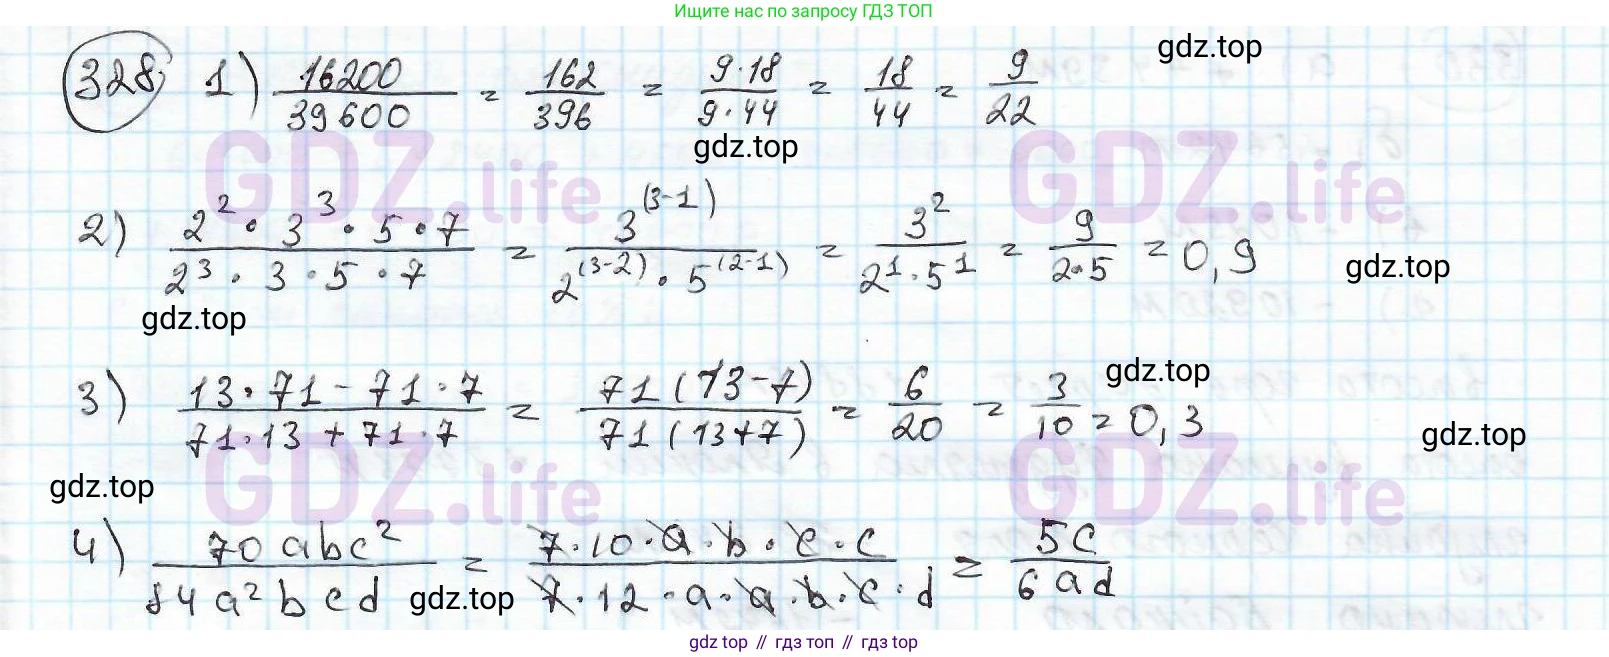 Ищите нас по запросу ГДЗ ТОП
gdz.top
328 1) 16200/39600 = 162/396 = 9·18/9·44 = 18/44 = 9/22
gdz.top
GDZ.life GDZ.life
2) 2²·3³·5·7/2³·3·5·7 = 3^(3-1)/2^(3-2)·5^(2-1) = 3²/2¹·5¹ = 9/2·5 = 0,9
gdz.top
gdz.top
gdz.top
3) 13·71-71·7/71·13+71·7 = 71(13-7)/71(13+7) = 6/20 = 3/10 = 0,3
gdz.top
gdz.top
GDZ.life GDZ.life
4) 70abc²/84a²bcd = 7·10·a·b·c·c/7·12·a·a·b·c·d = 5c/6ad
gdz.top
gdz top // гдз топ // gdz top